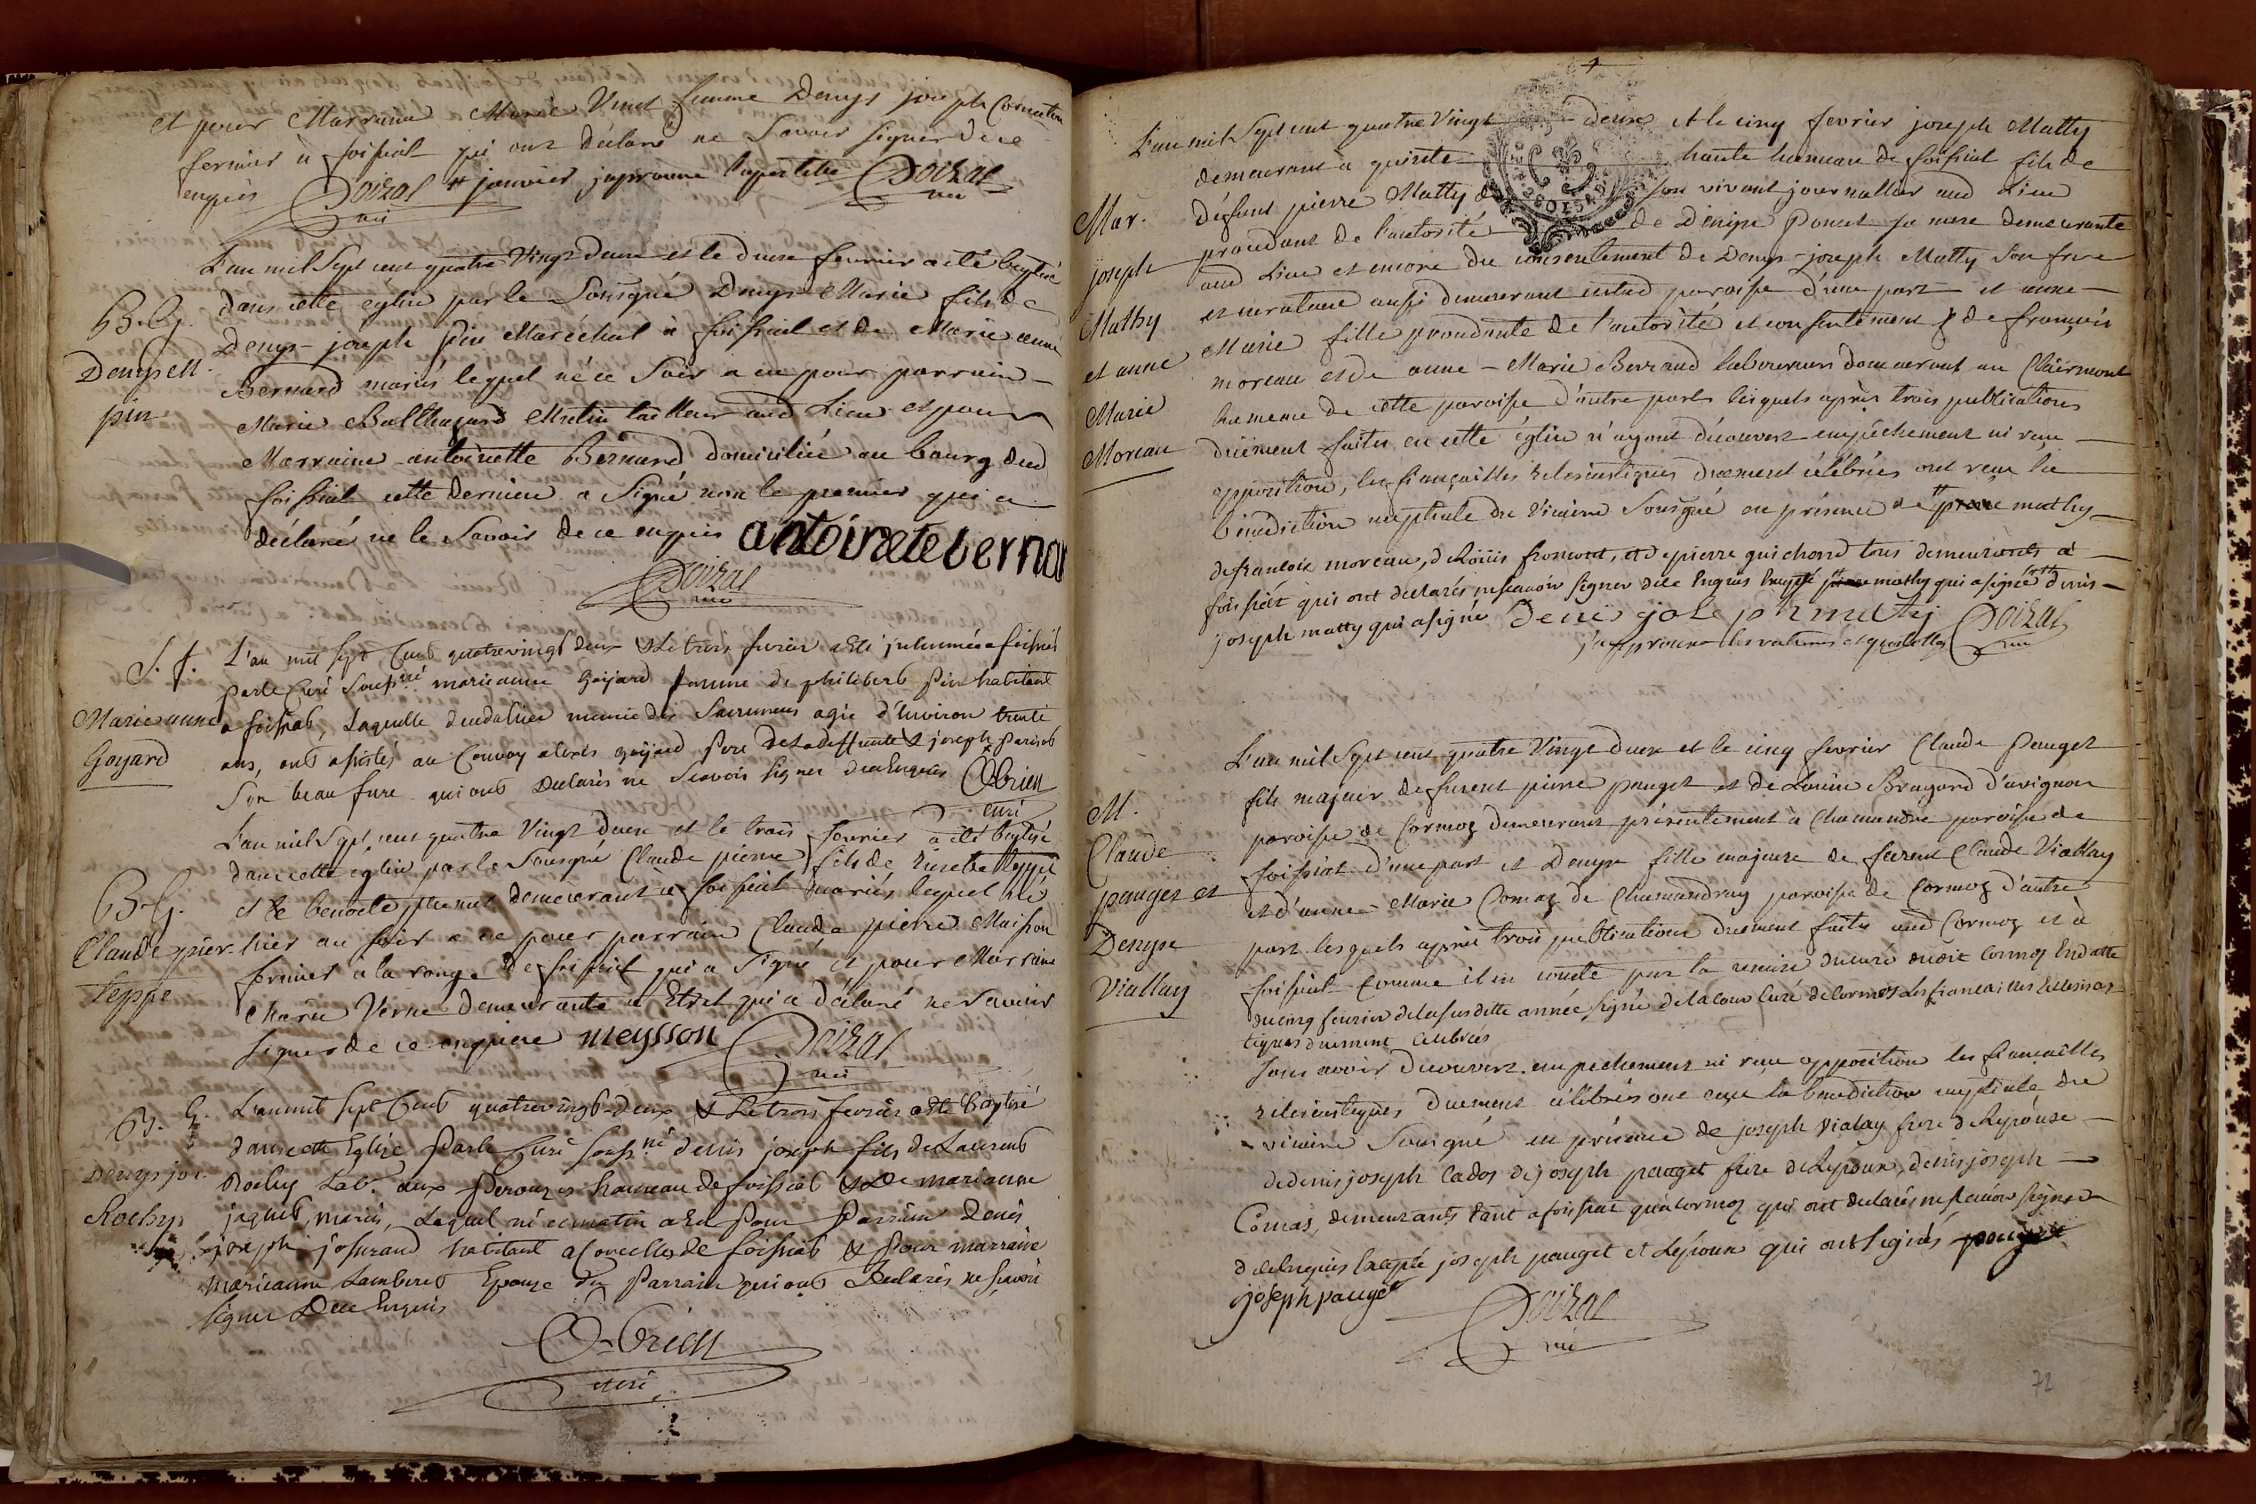 et pour Marraine Marie Vinet femme Denys joseph Convation
fermier à foissiat qui ont déclaré ne Savoir signer de ce
enquis Doizal # janvier japrouve l'apostille Doizal
vic vic
L'an mil Sept cent quatre Vingt Deux et le deux fevrier a été baptisé
B. G. dans cette eglise par le Sousigné Denys Marie fils de
Denys M. Denys-joseph pin Maréchal à foissiat et de Marie anne
pin Bernard mariés lequel né ce Soir a eu pour parrain
Marie Balthazard tailleur aud Lieu et pour
Marraine antoinette Bernard domiciliée au bourg dud
foissiat cette derniere a Signé non le premier qui a
déclaré ne le Savoir de ce enquis antoinetebernar
Doizal
vic
S. f. L'an mil sept Cent quatrevingt deux & le trois fevrier a Eté inhumée a foissiat
par le Curé Souss.né marieanne goyard femme de philibert pin habitant
Marie anne a foissiat, Laquelle decedalier munie des Sacremens agée d'Environ trente
Goyard ans, ont assisté au Convoy alexis goyard Pere de la deffunte & joseph Parisot
Son beau frere qui ont Declarés ne Scavoir signer de ce Enquis Obrien
curé
L'an mil Sept cent quatre Vingt deux et le trois fevrier a été baptisé
dans cette eglise par le Sousigné Claude pierre fils de teppe
B. G. et de benoite demeurant à foissiat mariés lequel né
Claude pier- hier au soir a eu pour parrain Claude pierre Maisson
teppe fermier a la ronge de foissiat qui a Signé et pour Marraine
Marie Verne demeurante a Etrel qui a déclaré ne Savoir
signer de ce enquise meysson Doizal
vic
B. G. L'an mil sept Cent quatrevingt-deux & Le trois fevrier a Eté Baptisé
dans cette Eglise Par le Curé Souss.né denis joseph fils de Laurent
Denys jos. Rochy Lab.r aux Perouzes hameau de foissiat & de marianne
Rochy jaquet, mariés, Lequel né ce matin a Eu Pour Parrain Denis
joseph josserand habitant a Courcelles de foissiat & Pour marraine
marieanne Lambert Epouse du Parrain qui ont Declarés ne Scavoir
signer De ce Enquis
Obrien
curé
L'an mil Sept cent quatre Vingt deux et le cinq fevrier joseph Matty
demeurant a quinte haute hameau de foissiat fils de
Mar. défunt pierre Matty de son vivant journallier aud Lieu
procedant de l'autorité de Denyse Poncet sa mere demeurante
joseph aud Lieu et encore du consentement de Denys-joseph Matty Son frere
Mathy et curateur aussi demeurant en lad paroisse d'une part et anne
et anne Marie fille procedante de l'autorité et consentement de françois
Marie moreau et de anne-Marie Berraud laboureurs demeurant au Clairmont
Moreau hameau de cette paroisse d'autre part lesquels après trois publications
duëment faites en cette église n'ayant découvert empêchement ni vue
opposition, les fiançailles eclesiastiques duement célébrées ont reçu la
bénédiction nuptiale du Vicaire Sousigné en présence de mathy
de francois moreau, de Loüis fromont, et de pierre guichard tous demeurants à
foissiat qui ont declarés ne scauoir signer de ce Enquis Excepté mathy qui a signé denis
joseph matty qui a signé denis joseph matty Doizal
j'approuve les ratures vic
L'an mil Sept cent quatre Vingt deux et le cinq fevrier Claude Pauget
fils majeur de furent pierre pauget et de Louise Brayard d'avignon
M. paroisse de Cormoz demeurant présentement à Chamandre paroisse de
Claude foissiat d'une part et Denyse fille majeure de furent Claude Viallay
pauget et et d'anne-Marie Comaz de Chamandray paroisse de Cormoz d'autre
Denyse part lesquels après trois publications duement faites aud Cormoz et à
Viallay foissiat comme il en conste par la remise du curé dudit Cormoz En datte
du cinq feurier de la susditte année, signé delacour Curé de Cormoz Les fiancailles Ecclesias-
tiques duement Celebrées
sans avoir découvert empechement ni vue opposition les fiancailles
eclesiastiques duement célébrées ont reçu la benediction nuptiale du
vicaire Sousigné en présence de joseph vialay frere de Lepouse
de denis joseph Cados de joseph pauget frere de Lepoux, denis joseph
Comas, demeurants tant a foissiat qu'a Cormoz qui ont declarés ne scauoir signer
de ce Enquis Excepté joseph pauget et Lepoux qui ont signés pauget
joseph pauget Doizal
vic
72